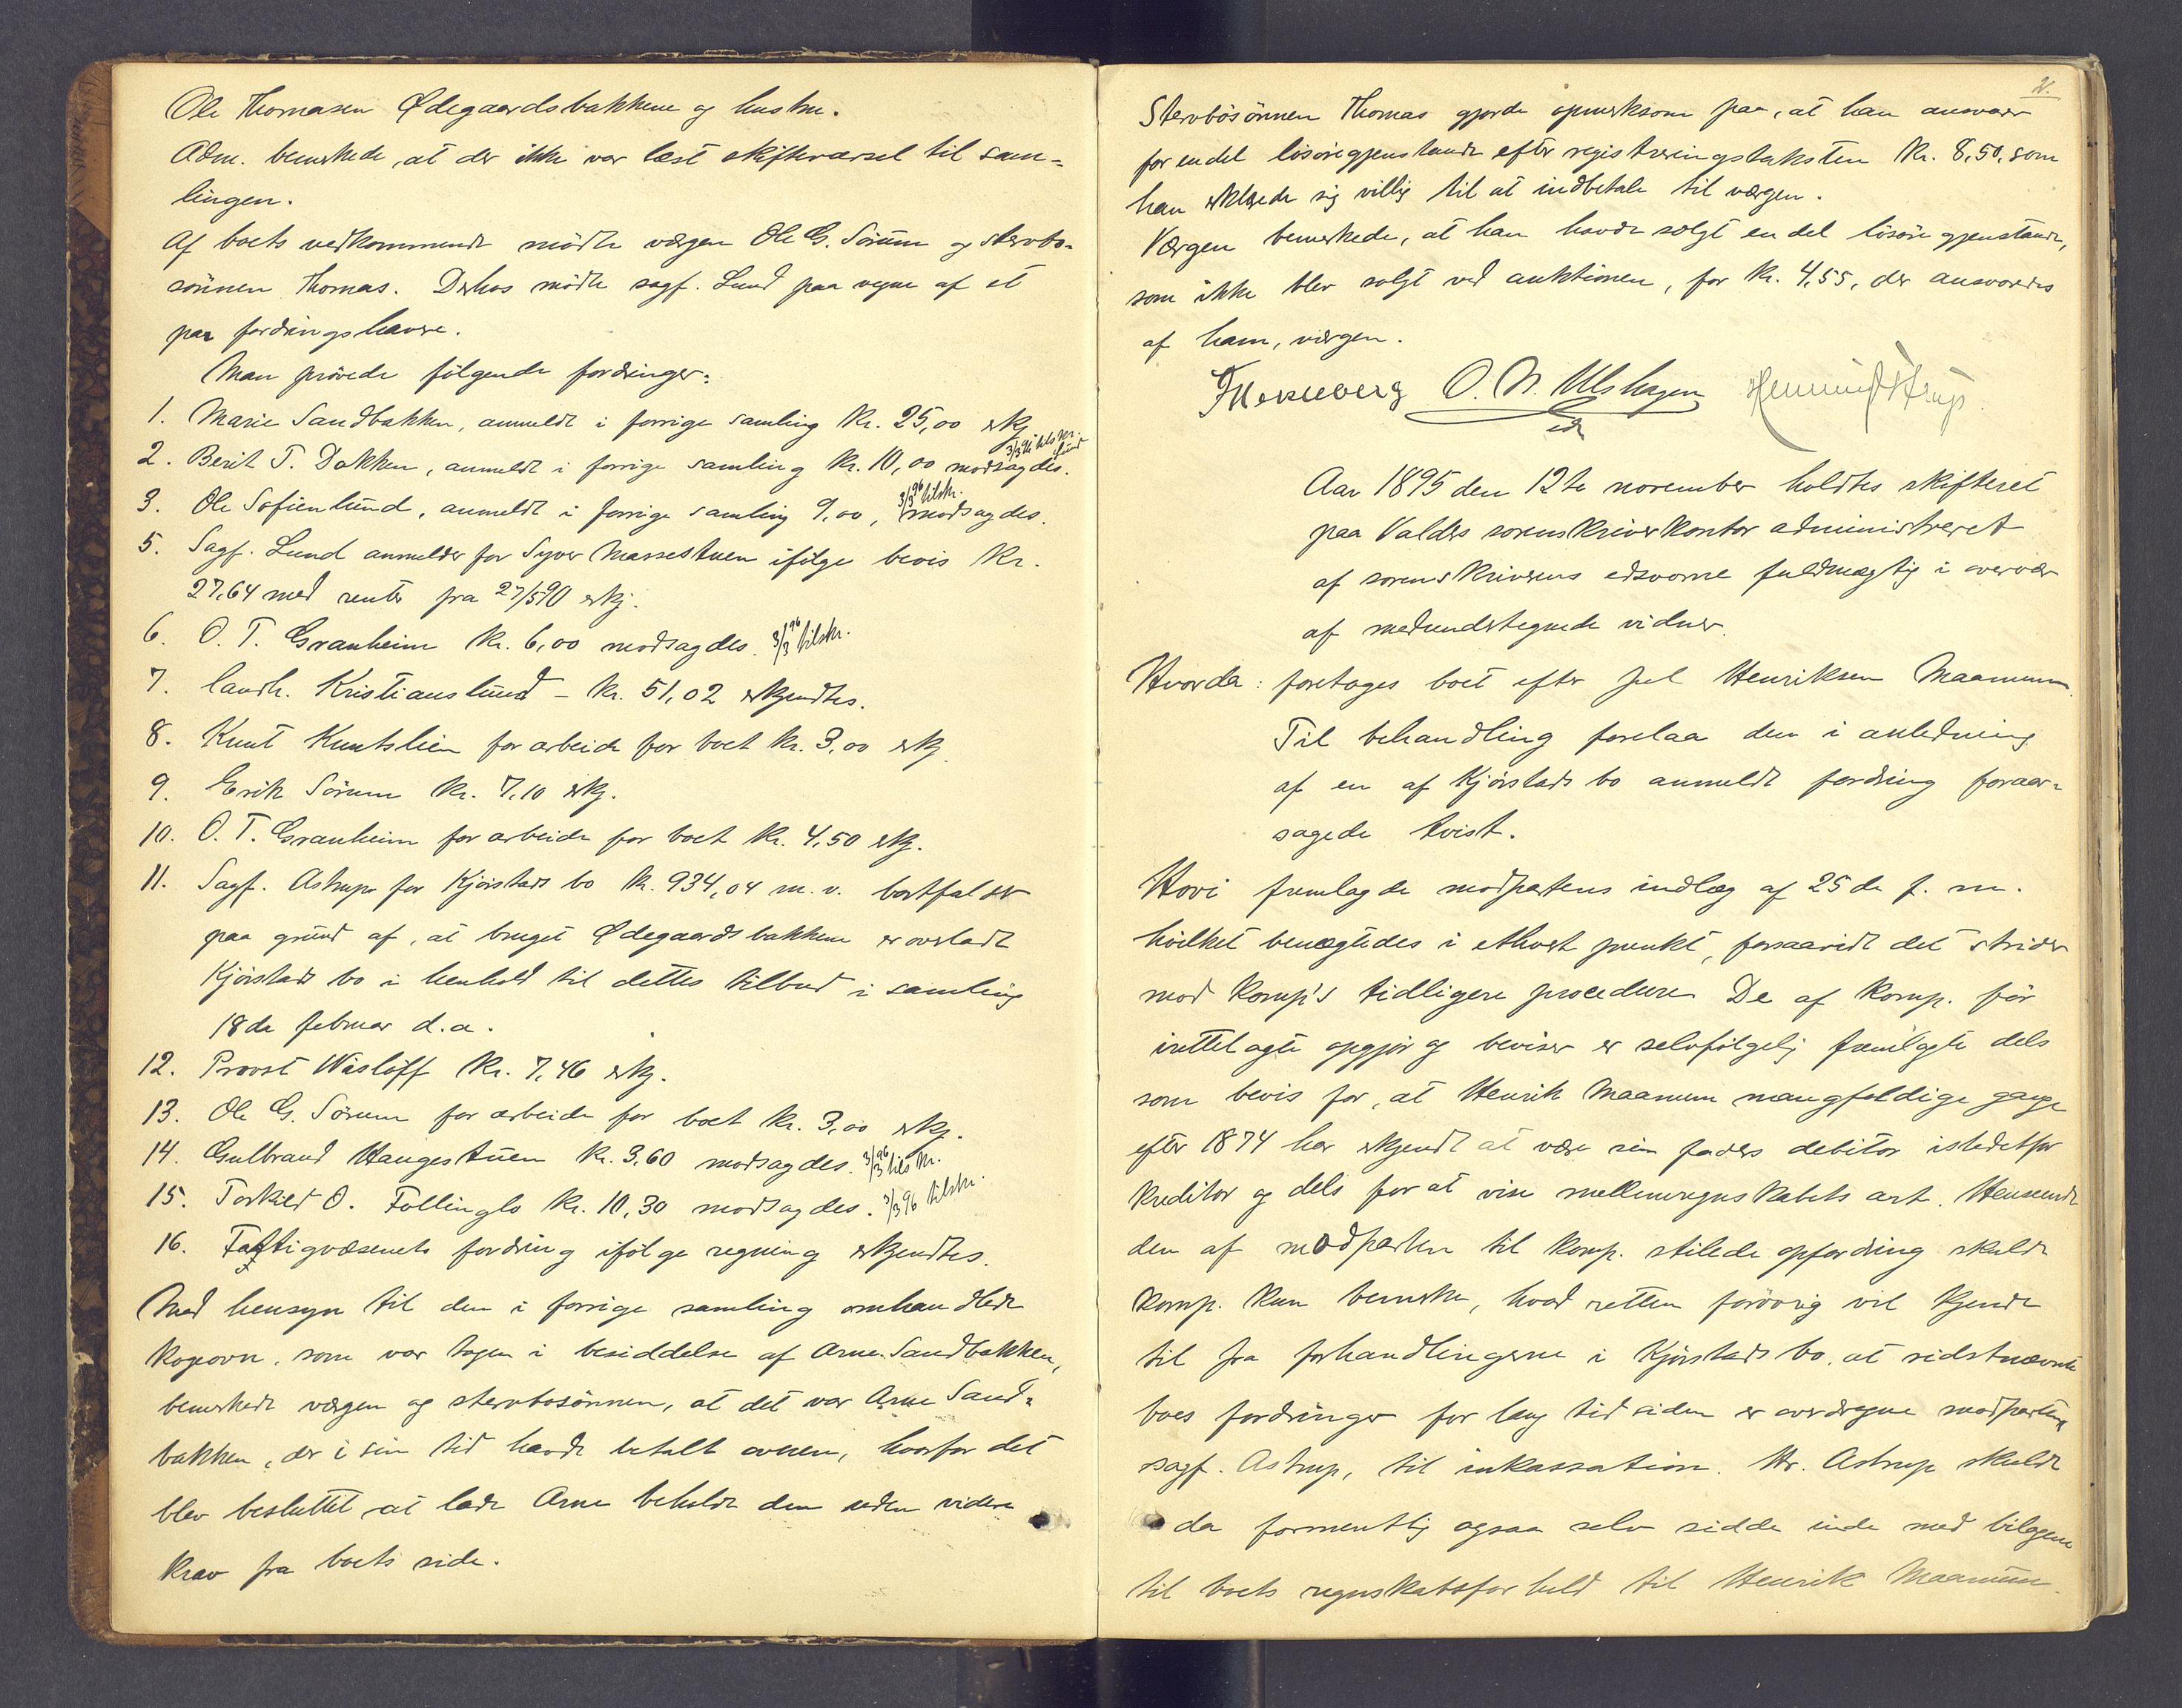 Ole Thomasen Ødegaardsbakkene og hustru.
Adm. bemerkede, at der ikke var læst skiftevarsel til sam-
lingen.
Af boets vedkommende mødte værgen Ole G. Sørum og stervbo-
sønnen Thomas. Derhos mødte sagf. Lund paa vegne af et
par fordringshavere.
Man prøvede følgende fordringer:
1. Marie Sandbakken, anmeldt i forrige samling Kr. 25,00 erkj.
2. Berit T. Dokken, anmeldt i forrige samling Kr. 10,00 modsagdes.
3. Ole Sofienlund, anmeldt i forrige samling 9,00, 3/3 96 tilskr. modsagdes.
5. Sagf. Lund anmelder for Syver Massestuen ifølge bevis Kr.
27,64 med renter fra 27/5 90 erkj.
6. O. T. Granheim Kr. 6,00 modsagdes. 3/3 96 tilskr.
7. landh. Kristianslund - Kr. 51,02 erkjendtes.
8. Knut Knutslien for arbeide for boet Kr. 3,00 erkj.
9. Erik Sørum Kr. 7,10 erkj.
10. O. T. Granheim for arbeide for boet Kr. 4,50 erkj.
11. Sagf. Astrup for Kjørstads bo Kr. 934,04 m. v. bortfalder
paa grund af, at bruget Ødegaardsbakkene er overladt
Kjørstads bo i henhold til dettes tilbud i samling
18de februar d.a.
12. Provst Wisløff Kr. 7,46 erkj.
13. Ole G. Sørum for arbeide for boet Kr. 3,00 erkj.
14. Gulbrand Haugestuen Kr. 3,60 modsagdes. 3/3 96 tilskr.
15. Torkild O. Follinglo Kr. 10,30 modsagdes. 3/3 96 tilskr.
16. Fattigvæsenets fordring ifølge regning erkjendtes.
Med hensyn til den i forrige samling omhandlede
kogeovn, som var tagen i besiddelse af Arne Sandbakken,
bemerkede værgen og stervbosønnen, at det var Arne Sand-
bakken, der i sin tid havde betalt ovnen, hvorfor det
blev besluttet at lade Arne beholde den uden videre
krav fra boets side.
Stervbosønnen Thomas gjorde opmerksom paa, at han ansvarer
for endel løsøregjenstande efter registreringstaksten Kr. 8,50, som
han erklærede sig villig til at indbetale til værgen.
Værgen bemerkede, at han havde solgt en del løsøregjenstande,
som ikke blev solgt ved auktionen, for Kr. 4,55, der ansvaredes
af ham, værgen.
O. N. Ulshagen Henning Astrup
Aar 1895 den 12te november holdtes skifteret
paa Valdres sorenskriverkontor administreret
af sorenskriverens edsvorne fuldmægtig i overvær
af medundertegnede vidner.
Hvorda: foretoges boet efter Juel Henriksen Maanum.
Til behandling forelaa den i anledning
af en af Kjørstads bo anmeldt fordring foraar-
sagede tvist.
Hovi fremlagde modpartens indlæg af 25de f. m.
hvilket benægtedes i ethvert punkt, forsaavidt det strider
mod komp's tidligere procedure. De af komp. før
irettelagte opgjør og beviser er selvfølgelig fremlagte dels
som bevis for, at Henrik Maanum mangfoldige gange
efter 1874 har erkjendt at være sin faders debitor istedetfor
kreditor og dels for at vise mellemregnskabets art. Henseende
den af modparten til komp. stilede opfordring skulde
komp. kun bemerke, hvad retten forøvrig vil kjende
til fra forhandlingerne i Kjørstads bo, at sidstnævnte
boes fordringer for lang tid siden er overdragne modparten,
sagf. Astrup, til inkassation. Hr. Astrup skulde
da formentlig ogsaa selv sidde inde med bilagene
til boets regnskabsforhold til Henrik Maanum.